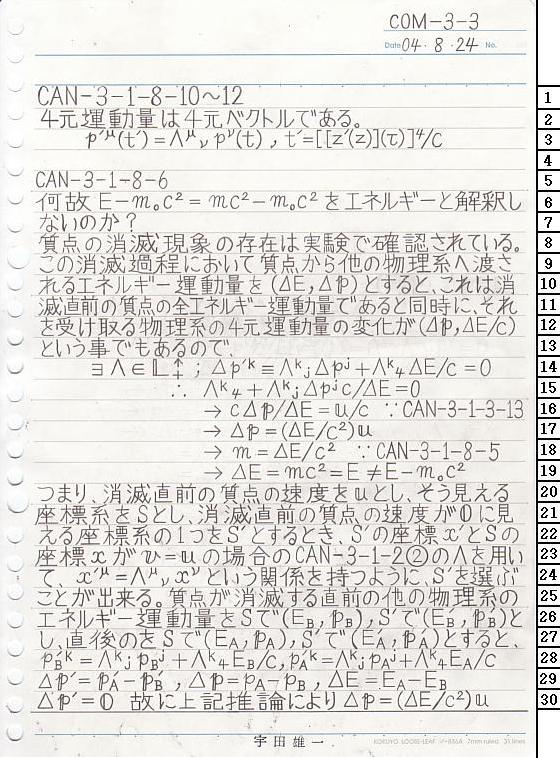 COM-3-3
Date 04・8・24 No.
CAN-3-1-8-10〜12
4元運動量は4元ベクトルである。
p'^μ(t')=Λ^μ_ν p^ν(t) , t'=[[z'(z)](τ)]^4/c
CAN-3-1-8-6
何故E-m₀c²=mc²-m₀c²をエネルギーと解釈し
ないのか?
質点の消滅現象の存在は実験で確認されている。
この消滅過程において質点から他の物理系へ渡さ
れるエネルギー運動量を(ΔE,Δ𝕡)とすると、これは消
滅直前の質点の全エネルギー運動量であると同時に、それ
を受け取る物理系の4元運動量の変化が(Δ𝕡,ΔE/c)
という事でもあるので、
∃Λ∈𝕃↑₊ ; Δp'^k≡Λ^k_jΔp^j+Λ^k_4ΔE/c=0
∴ Λ^k_4+Λ^k_jΔp^jc/ΔE=0
→ cΔ𝕡/ΔE=𝕦/c ∵CAN-3-1-3-13
→ Δ𝕡=(ΔE/c²)𝕦
→ m=ΔE/c² ∵CAN-3-1-8-5
→ ΔE=mc²=E≠E-m₀c²
つまり、消滅直前の質点の速度を𝕦とし、そう見える
座標系をSとし、消滅直前の質点の速度が𝟘に見
える座標系の1つをS'とするとき、S'の座標x'とSの
座標xが𝕧=𝕦の場合のCAN-3-1-2②のΛを用い
て、x'^μ=Λ^μ_ν x^νという関係を持つように、S'を選ぶ
ことが出来る。質点が消滅する直前の他の物理系の
エネルギー運動量をSで(E_B,𝕡_B),S'で(E'_B,𝕡'_B)と
し、直後のをSで(E_A,𝕡_A),S'で(E'_A,𝕡'_A)とすると、
p'_B^k=Λ^k_jp_B^j+Λ^k_4E_B/c,p'_A^k=Λ^k_jp_A^j+Λ^k_4E_A/c
Δ𝕡'=𝕡'_A-𝕡'_B ,Δ𝕡=𝕡_A-𝕡_B ,ΔE=E_A-E_B
Δ𝕡'=𝟘 故に上記推論によりΔ𝕡=(ΔE/c²)𝕦
宇田雄一
KOKUYO LOOSE-LEAF ノ-836A 7mm ruled 31 lines
1
2
3
4
5
6
7
8
9
10
11
12
13
14
15
16
17
18
19
20
21
22
23
24
25
26
27
28
29
30